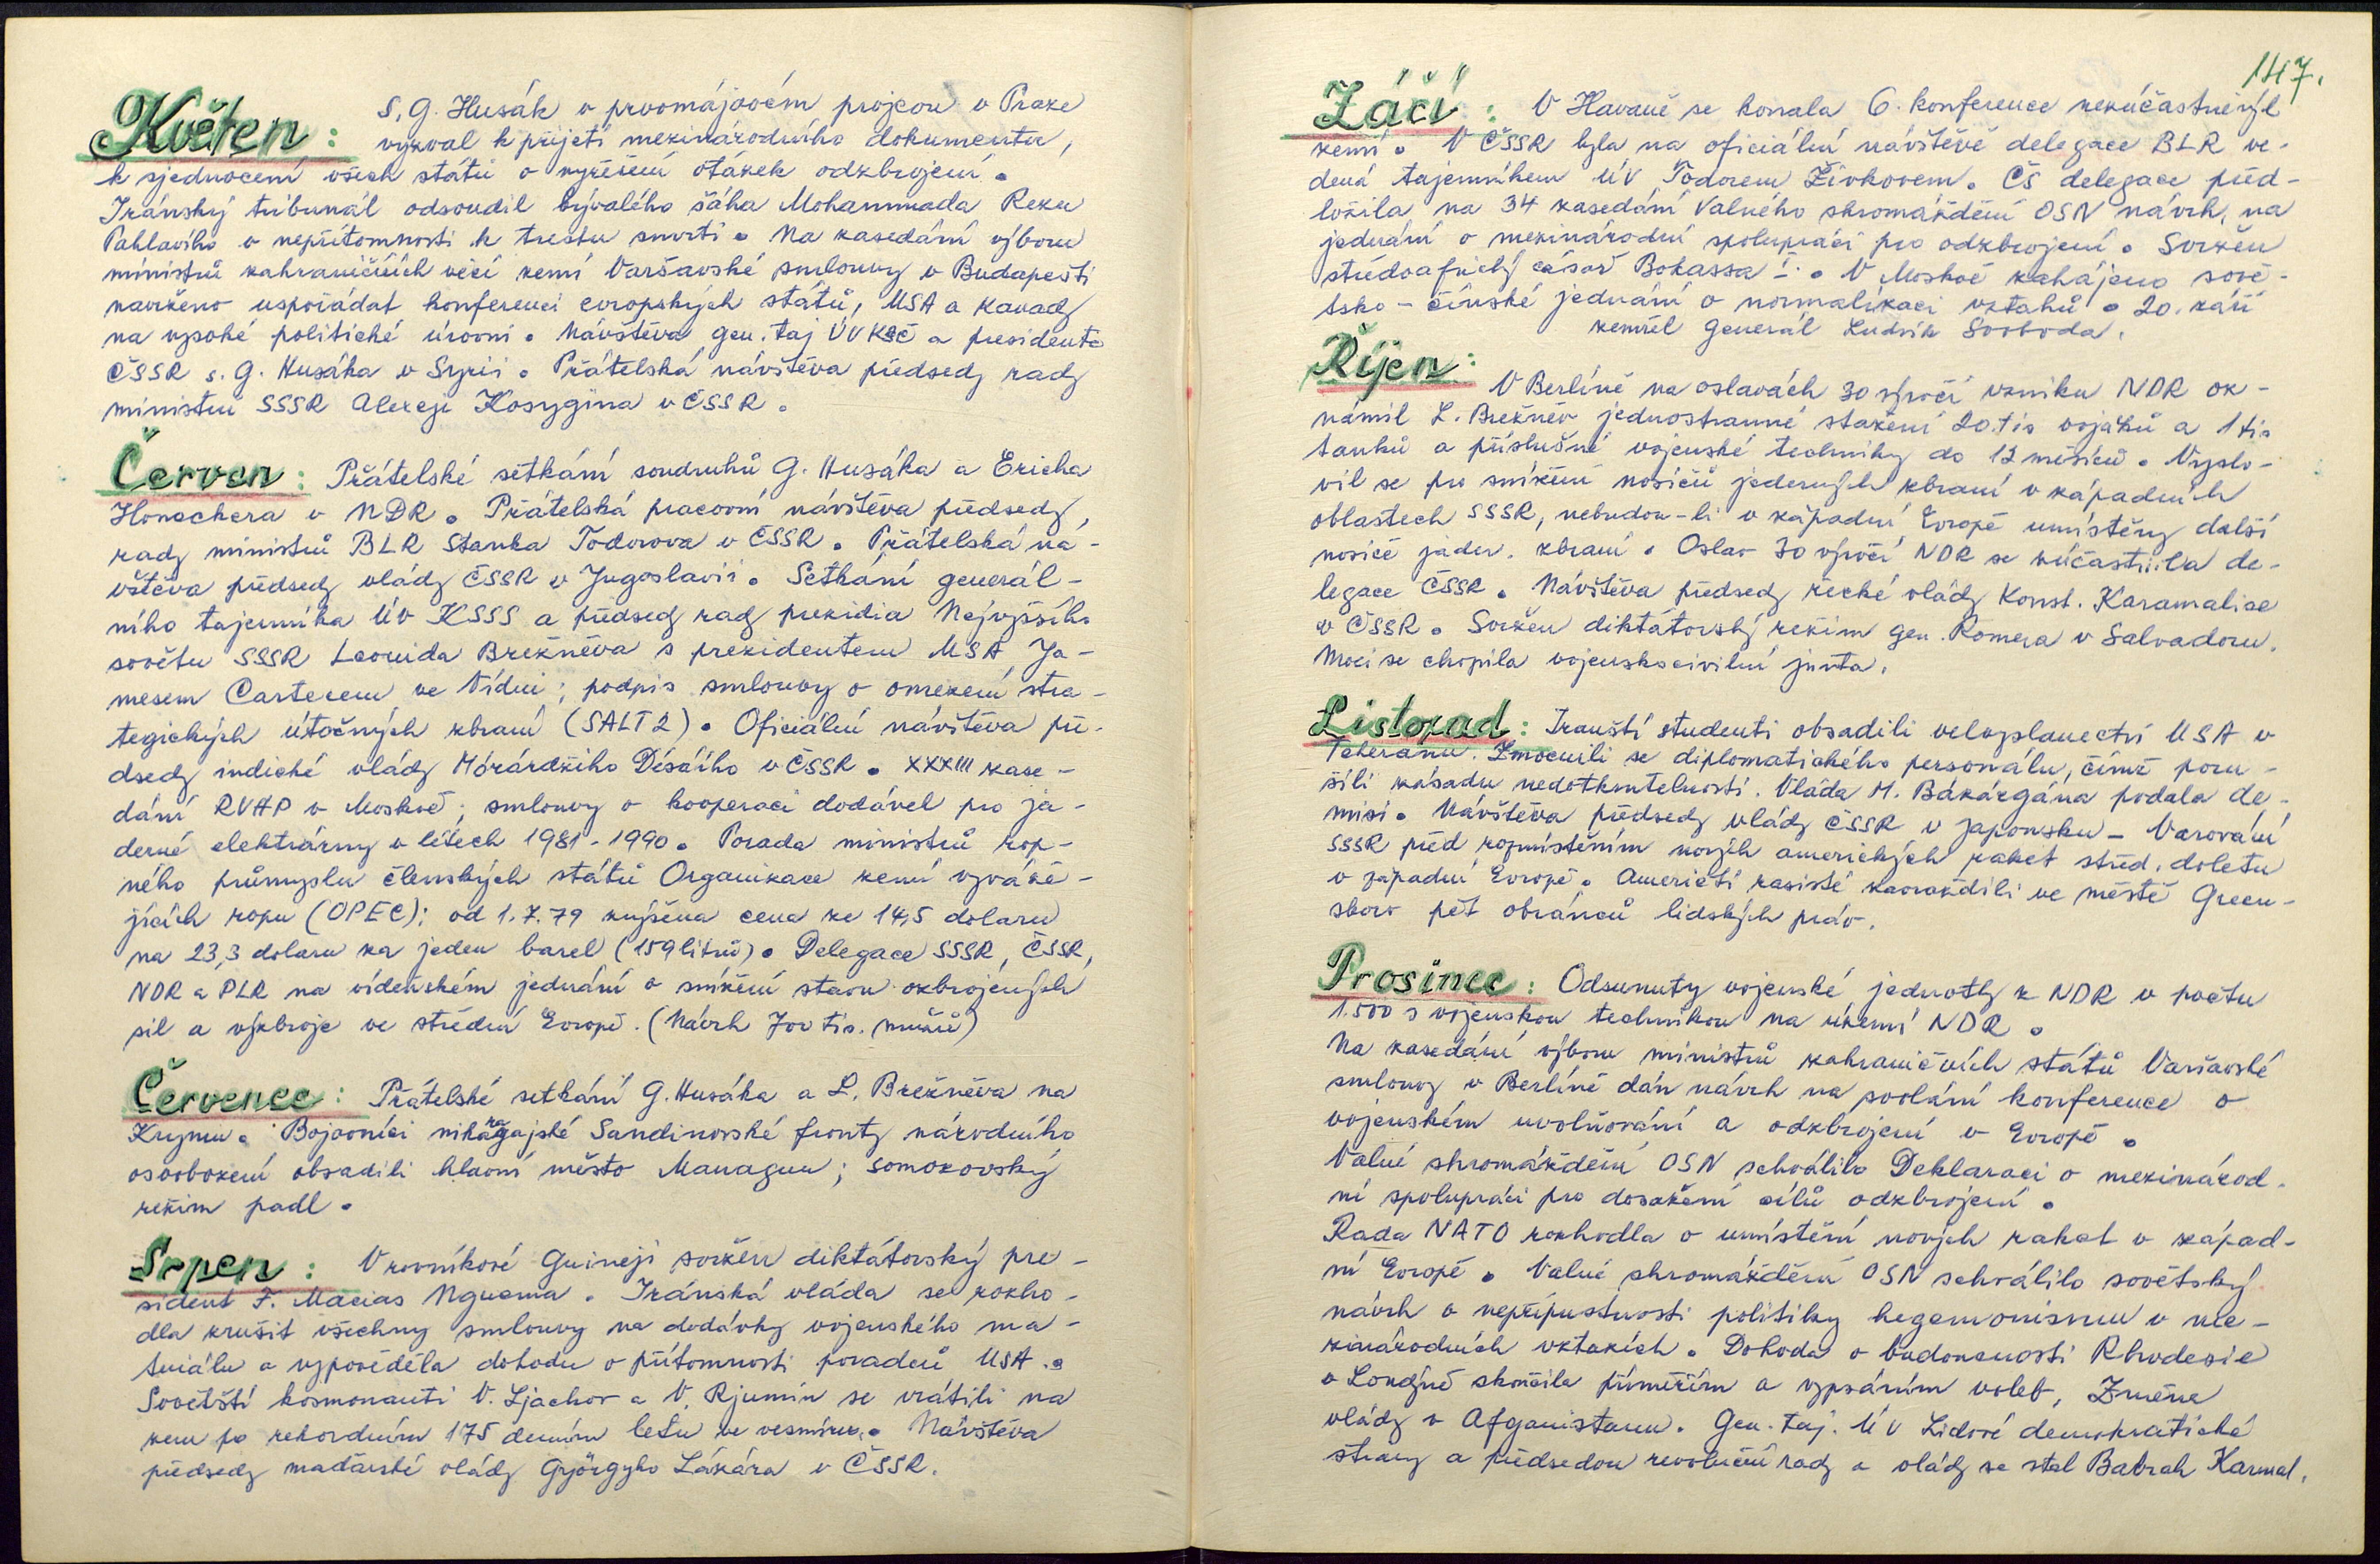 Květen: S. G. Husák v prvomájovém projevu v Praze
vyzval k přijetí mezinárodního dokumentu,
k sjednocení všech států o vyřešení otázek odzbrojení.
Iránský tribunál odsoudil bývalého šáha Mohammada Rezu
Pahlavího v nepřítomnosti k trestu smrti. Na zasedání výboru
ministrů zahraničních věcí zemí Varšavské smlouvy v Budapešti
navrženo uspořádat konferenci evropských států, USA a Kanady
na vysoké politické úrovni. Návštěva gen. taj ÚV KSČ a presidenta
ČSSR s. G. Husáka v Syrii. Přátelská návštěva předsedy rady
ministrů SSSR Alexeje Kosygina v ČSSR.
Červen: Přátelské setkání soudruhů G. Husáka a Ericha
Honeckera v NDR. Přátelská pracovní návštěva předsedy
rady ministrů BLR Stanka Todorova v ČSSR. Přátelská ná-
vštěva předsedy vlády ČSSR v Jugoslavii. Setkání generál-
ního tajemníka ÚV KSSS a předsedy rady prezidia Nejvyššího
sovětu SSSR Leonida Brežněva s prezidentem USA Ja-
mesem Carterem ve Vídni; podpis smlouvy o omezení stra-
tegických útočných zbraní (SALT 2). Oficiální návštěva pře-
dsedy indické vlády Mórárdžího Désáího v ČSSR. XXXIII zase-
dání RVHP v Moskvě; smlouvy o kooperaci dodávek pro ja-
derné elektrárny v létech 1981-1990. Porada ministrů rop-
ného průmyslu členských států Organizace zemí vyváže-
jících ropu (OPEC); od 1.7.79 zvýšena cena ze 14,5 dolaru
na 23,3 dolaru za jeden barel (159 litrů). Delegace SSSR, ČSSR,
NDR a PLR na vídeňském jednání o snížení stavu ozbrojených
sil a výzbroje ve střední Evropě. (Návrh 700 tis. mužů)
Červenec: Přátelské setkání G. Husáka a L. Brežněva na
Krymu. Bojovníci nikaragajské Sandinovské fronty národního
osvobození obsadili hlavní město Managuu; somozovský
režim padl.
Srpen: V rovníkové Guineji svržen diktátorský pre-
sident F. Macias Nguema. Iránská vláda se rozho-
dla zrušit všechny smlouvy na dodávky vojenského ma-
teriálu a vypověděla dohodu o přítomnosti poradců USA.
Sovětští kosmonauti V. Ljachov a V. Rjumin se vrátili na
zem po rekordním 175 denním letu ve vesmíru. Návštěva
předsedy maďarské vlády Györgyho Lázára v ČSSR.
147.
Záčí: V Havaně se konala 6. konference nezúčastněných
zemí. V ČSSR byla na oficiální návštěvě delegace BLR ve-
dená tajemníkem ÚV Todorem Živkovem. Čs delegace před-
ložila na 34 zasedání Valného shromáždění OSN návrh na
jednání o mezinárodní spolupráci pro odzbrojení. Svržen
středoafrický císař Bokassa I. V Moskvě zahájeno sově-
tsko-čínské jednání o normalizaci vztahů. 20. září
zemřel generál Ludvík Svoboda.
Říjen: V Berlíně na oslavách 30 výročí vzniku NDR oz-
námil L. Brežněv jednostranné stažení 20.tis vojáků a 1 tis
tanků a příslušné vojenské techniky do 12 měsíců. Vyslo-
vil se pro snížení nosičů jaderných zbraní v západních
oblastech SSSR, nebudou-li v západní Evropě umístěny další
nosiče jader. zbraní. Oslav 30 výročí NDR se zúčastnila de-
legace ČSSR. Návštěva předsedy řecké vlády Konst. Karamalise
v ČSSR. Svržen diktátorský režim gen. Romera v Salvadoru.
Moci se chopila vojenskocivilní junta.
Listopad: Iránští studenti obsadili velvyslanectví USA v
Teheránu. Zmocnili se diplomatického personálu, čímž poru-
šili zásadu nedotknutelnosti. Vláda M. Bázárgána podala de-
misi. Návštěva předsedy vlády ČSSR v Japonsku - Varování
SSSR před rozmístěním nových amerických raket střed. doletu
v západní Evropě. Američtí rasisté zavraždili ve městě Green-
sboro pět obránců lidských práv.
Prosinec: Odsunuty vojenské jednotky z NDR v počtu
1.500 s vojenskou technikou na území NDR.
Na zasedání výboru ministrů zahraničních států Varšavské
smlouvy v Berlíně dán návrh na svolání konference o
vojenském uvolňování a odzbrojení v Evropě.
Valné shromáždění OSN schválilo Deklaraci o mezinárod-
ní spolupráci pro dosažení cílů odzbrojení.
Rada NATO rozhodla o umístění nových raket v západ-
ní Evropě. Valné shromáždění OSN schválilo sovětský
návrh o nepřípustnosti politiky hegemonismu v me-
zinárodních vztazích. Dohoda o budoucnosti Rhodesie
v Londýně skončila příměřím a vypsáním voleb, Změna
vlády v Afganistanu. Gen. taj. ÚV Lidové demokratické
strany a předsedou revoluční rady a vlády se stal Babrak Karmal.